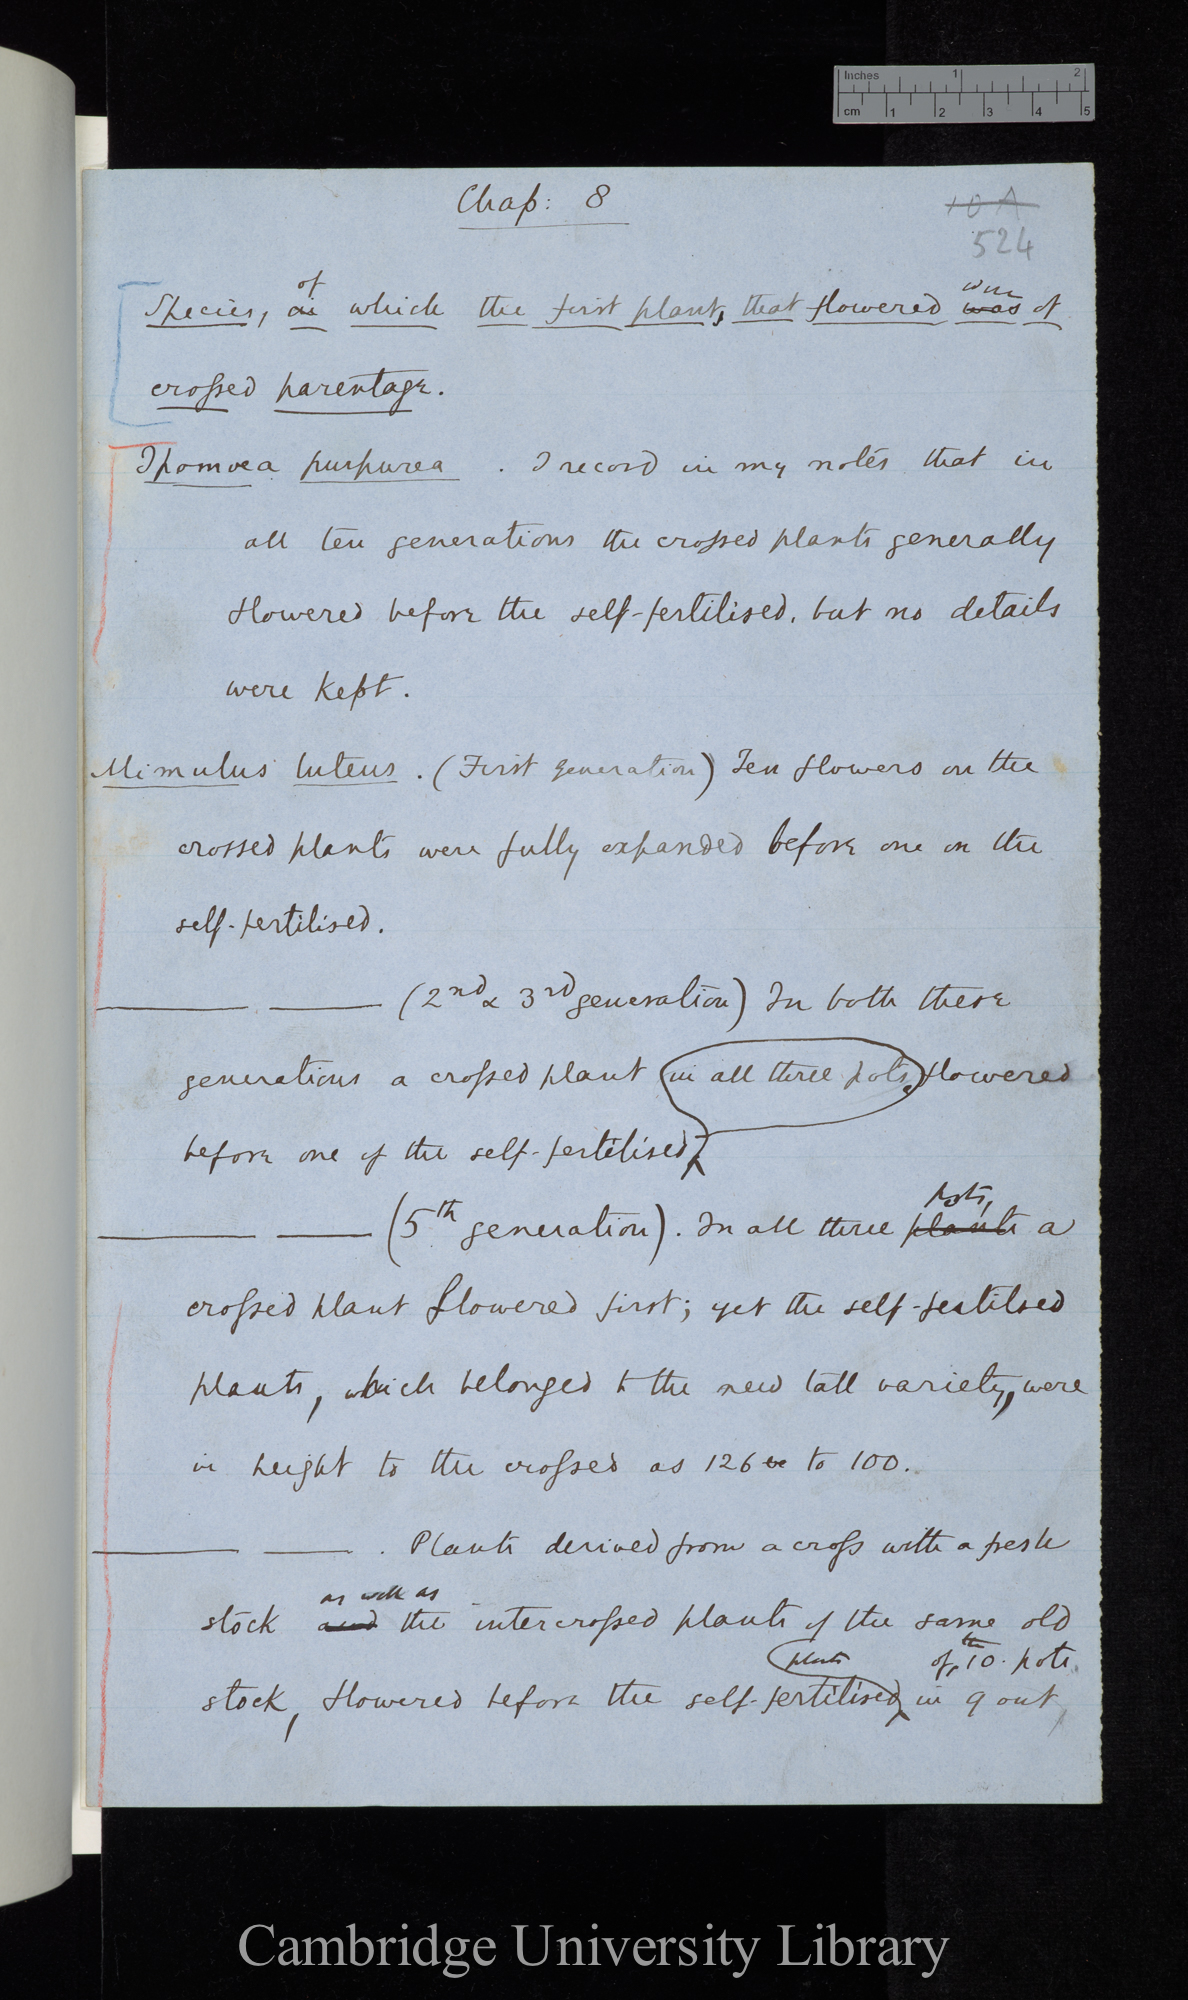 Inches 1 2
cm 1 2 3 4 5
Chap: 8
10 A
524
of were
Species, in which the first plant, that flowered was of
crossed parentage.
Ipomoea purpurea . I record in my notes that in
all ten generations the crossed plants generally
flowered before the self-fertilised, but no details
were kept.
Mimulus luteus . (First generation) Ten flowers on the
crossed plants were fully expanded before one on the
self-fertilised.
——— ——— (2nd & 3rd generation) In both these
generations a crossed plant in all three pots, flowered
before one of the self-fertilised
pots,
——— ——— (5th generation). In all three plants a
crossed plant flowered first; yet the self-fertilsed
plants, which belonged to the new tall variety, were
in height to the crossed as 126 to 100.
——— ——— . Plants derived from a cross with a fresh
as well as
stock and the intercrossed plants of the same old
plants of the 10. pots.
stock, flowered before the self-fertilised in 9 out
Cambridge University Library